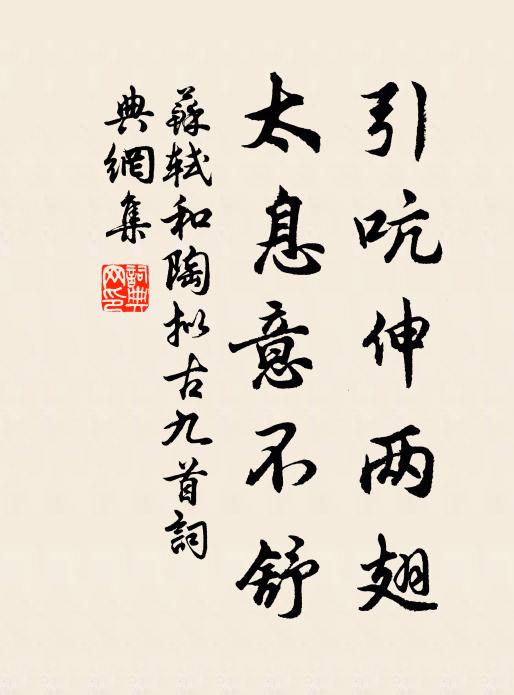 引吭伸两翅
太息意不舒
蘇轼和陶拟古九首詞
典網集
詞典網印